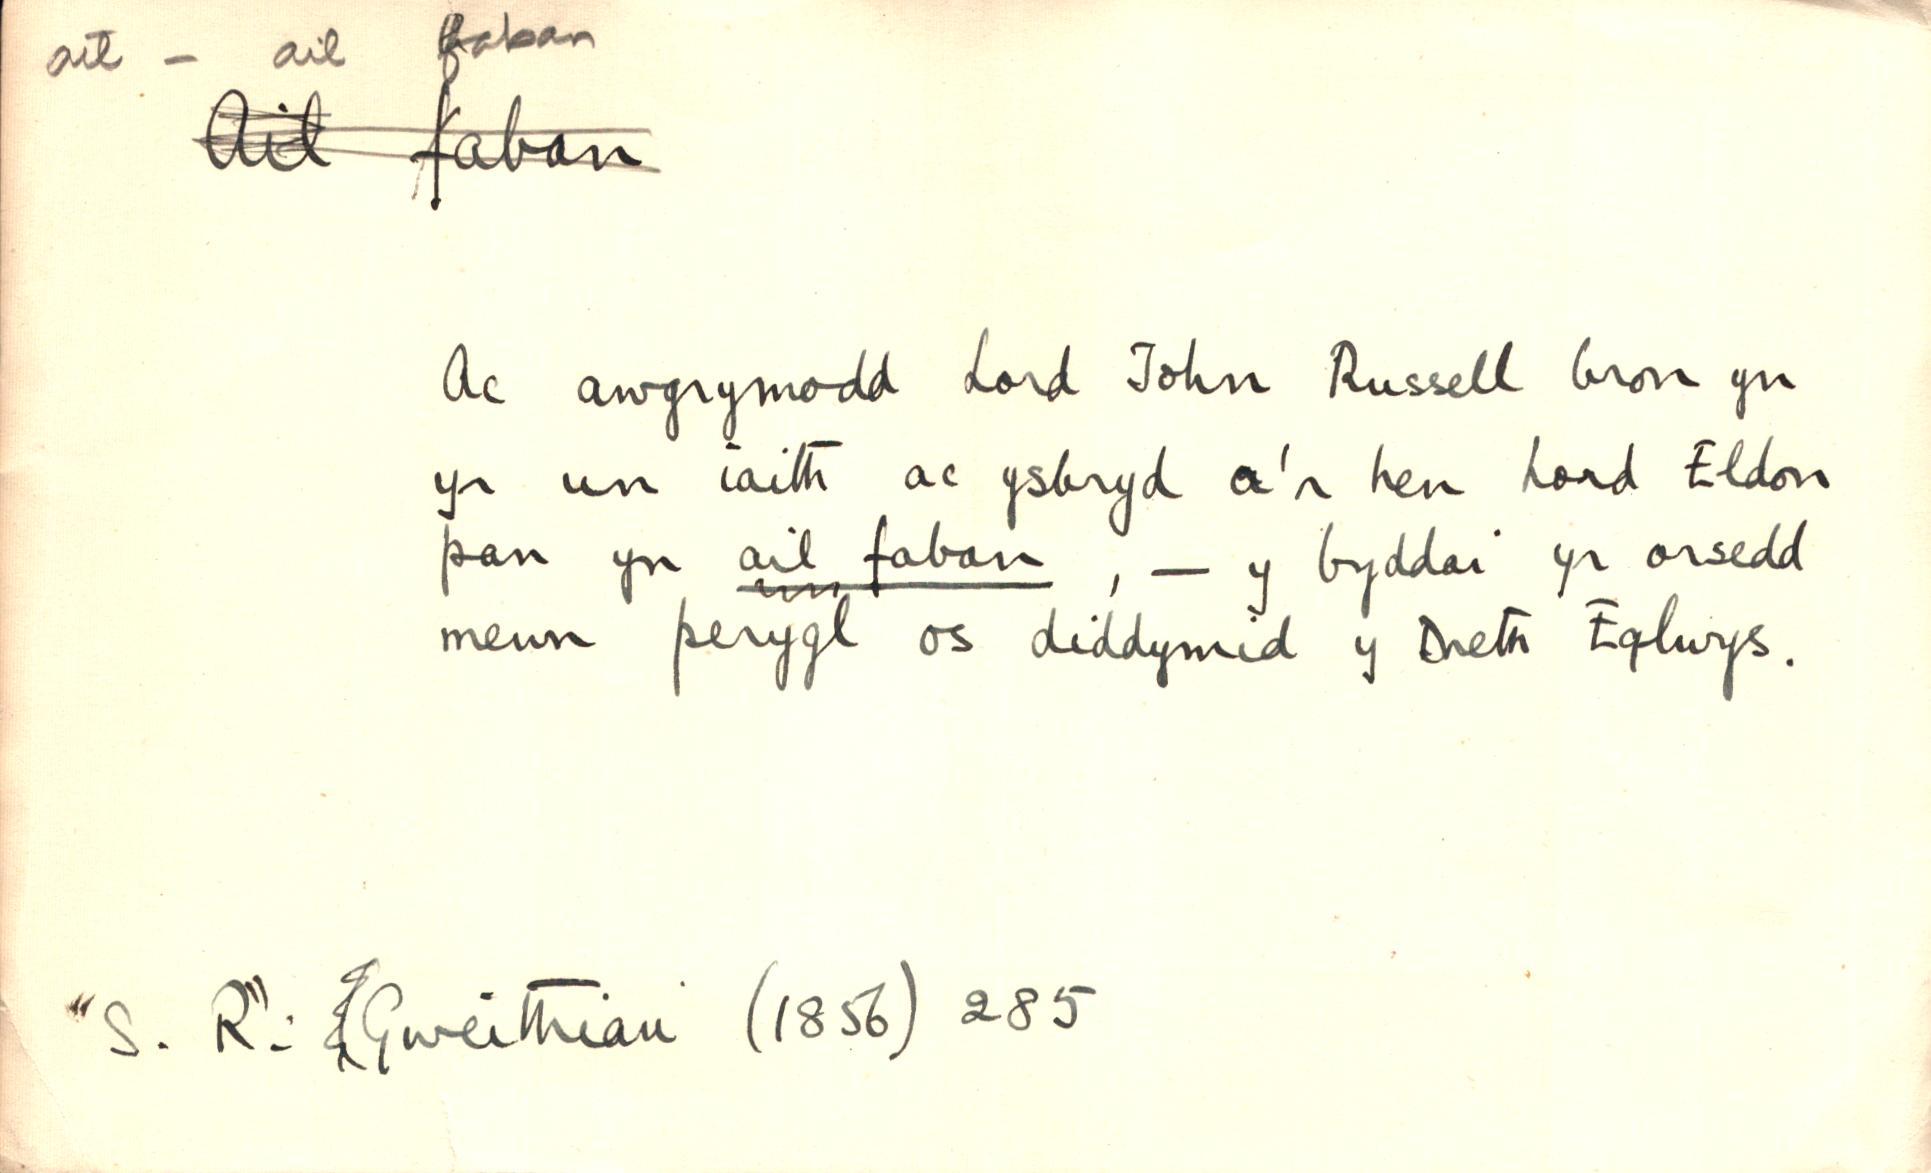 ail - ail faban
Ail faban
Ac awgrymodd Lord John Russell bron yn
yr un iaith ac ysbryd a'r hen Lord Eldon
pan yn ail faban, — y byddai yr orsedd
mewn perygl os diddymid y Dreth Eglwys.
"S. R": Gweithiau (1856) 285